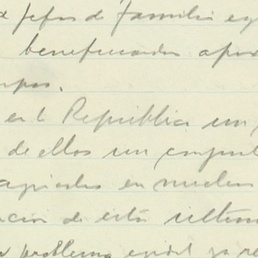 jefes de familia
beneficiados
en la República un
de ellos un conjunt
agrícolas en nucleos
ación de esta ultim
problema ejidal ya re